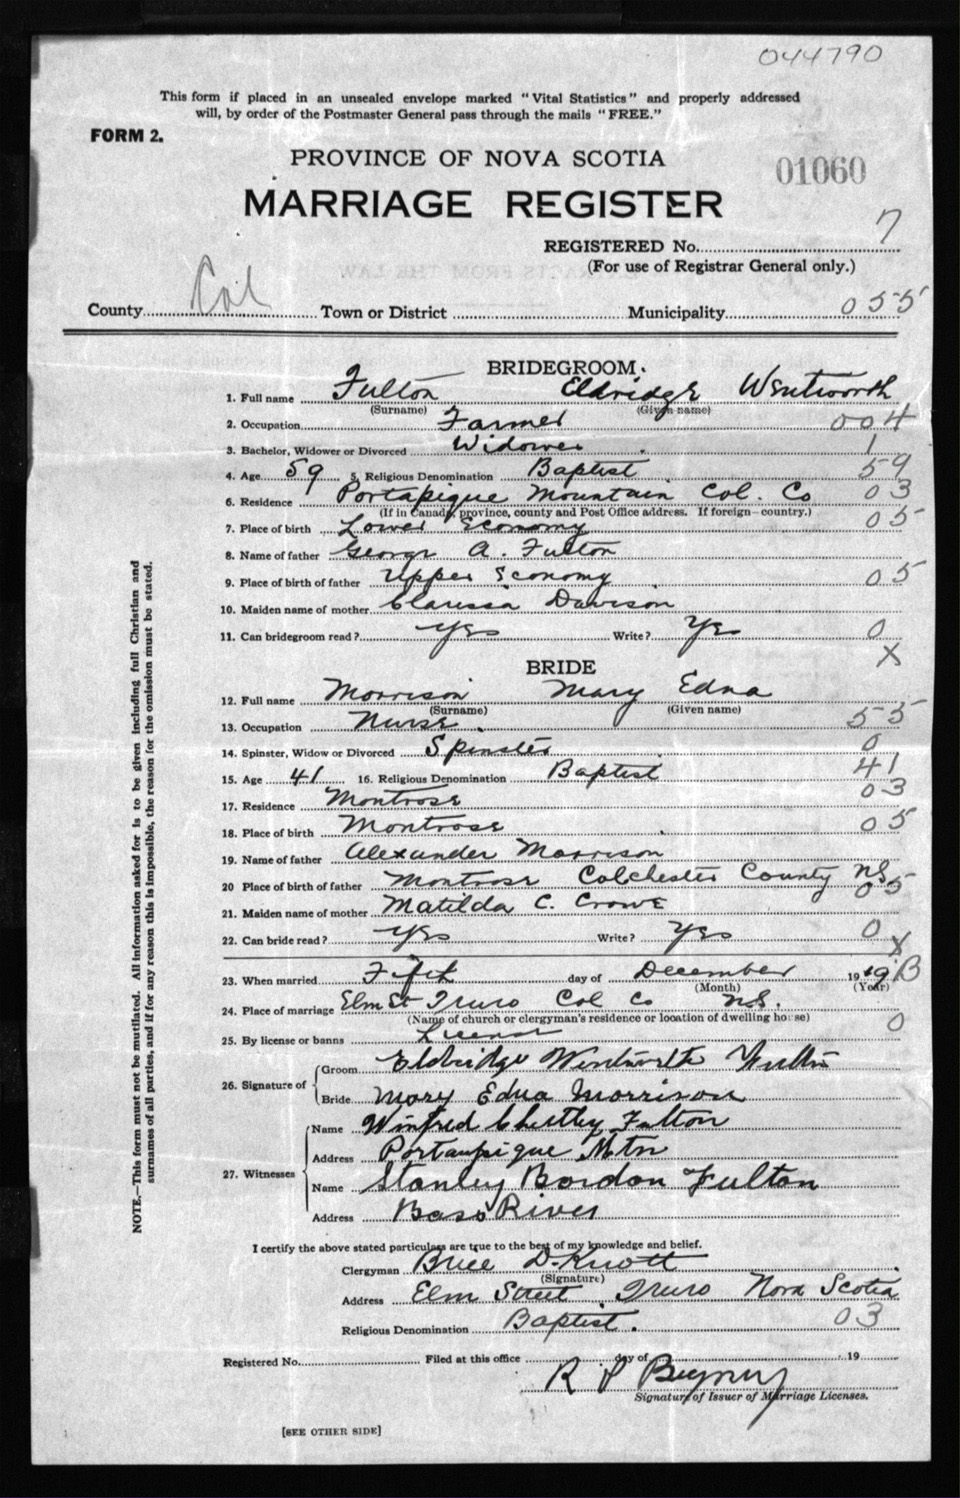 044790
This form if placed in an unsealed envelope marked "Vital Statistics" and properly addressed
will, by order of the Postmaster General pass through the mails "FREE."
FORM 2.
PROVINCE OF NOVA SCOTIA
01060
MARRIAGE REGISTER
REGISTERED No. 7
(For use of Registrar General only.)
County Col Town or District Municipality 055
BRIDEGROOM.
1. Full name Fulton Eldridge Wentworth
(Surname) (Given name)
2. Occupation Farmer 004
3. Bachelor, Widower or Divorced Widower 1
4. Age 59 5. Religious Denomination Baptist 59
6. Residence Portapique Mountain Col. Co 03
(If in Canada, province, county and Post Office address. If foreign—country.)
7. Place of birth Lower Economy 05
8. Name of father George A. Fulton
9. Place of birth of father Upper Economy 05
10. Maiden name of mother Clarissa Davison
11. Can bridegroom read? Yes Write? Yes 0
X
BRIDE
12. Full name Morrison Mary Edna
(Surname) (Given name)
13. Occupation Nurse 55
14. Spinster, Widow or Divorced Spinster 0
15. Age 41 16. Religious Denomination Baptist 41
17. Residence Montrose 03
18. Place of birth Montrose 05
19. Name of father Alexander Morrison
20 Place of birth of father Montrose Colchester County NS 05
21. Maiden name of mother Matilda C. Crowe
22. Can bride read? Yes Write? Yes 0
X
23. When married Fifth day of December 19
(Month) (Year)
24. Place of marriage Elm St Truro Col Co N.S.
(Name of church or clergyman's residence or location of dwelling house) 0
25. By license or banns License
26. Signature of Groom Eldridge Wentworth Fulton
Bride Mary Edna Morrison
27. Witnesses Name Winfred Fulton
Address Portaupique Mtn
Name Stanley Bordon Fulton
Address Bass River
I certify the above stated particulars are true to the best of my knowledge and belief.
Clergyman D. Knott
(Signature)
Address Elm Street Truro Nova Scotia
Religious Denomination Baptist. 03
Registered No. Filed at this office day of 19
R P
Signature of Issuer of Marriage Licenses.
[SEE OTHER SIDE]
NOTE.—This form must not be mutilated. All information asked for is to be given including full Christian and
surnames of all parties, and if for any reason this is impossible, the reason for the omission must be stated.